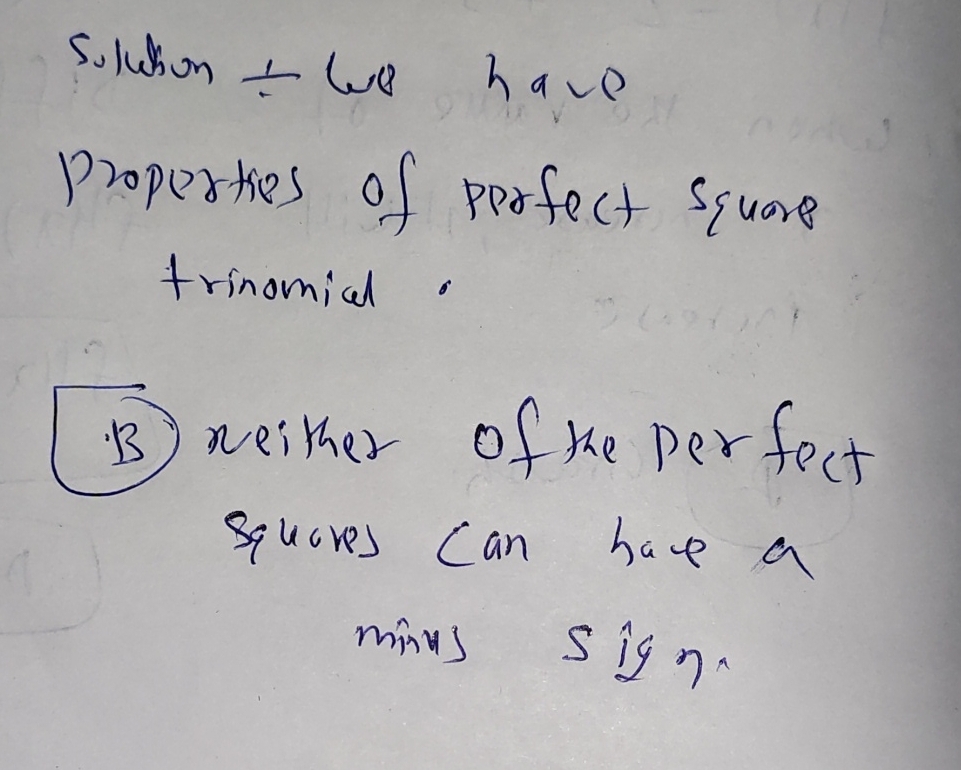 Solution ÷ We have
Properties of perfect square
trinomial .
B) neither of the perfect
squares can have a
minus sign.